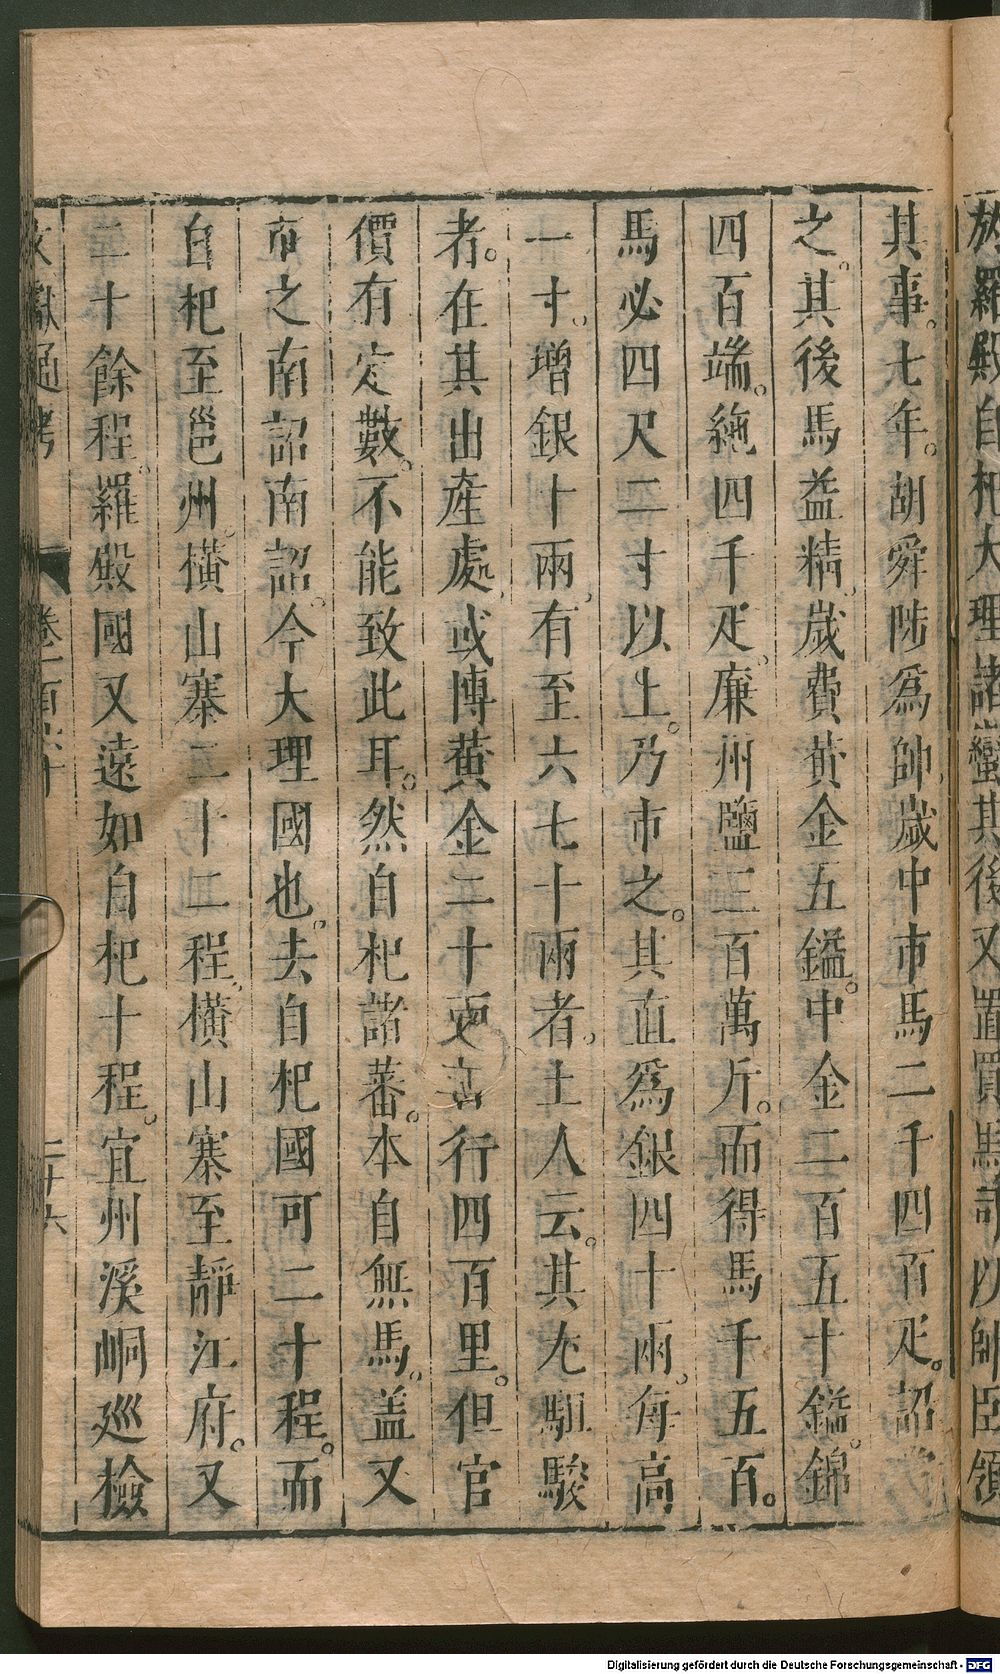 放羅殿自杞大理諸蠻其後又置買馬司以帥臣領
其事。七年。胡舜陟爲帥。歲中市馬二千四百疋。詔賞
之。其後馬益精。歲費黃金五鎰。中金二百五十鎰。錦
四百端。絁四千疋。廉州鹽二百萬斤。而得馬千五百。
馬必四尺二寸以上。乃市之。其直爲銀四十兩。每高
一寸。增銀十兩。有至六七十兩者。土人云。其尤駔駿
者。在其出產處。或博黃金二十兩。日行四百里。但官
價有定數。不能致此耳。然自杞諸蕃。本自無馬。蓋又
市之南詔南詔。今大理國也。去自杞國可二十程。而
自杞至邕州。橫山寨二十二程。橫山寨至靜江府。又
二十餘程。羅殿國又遠如自杞十程。宜州溪峒巡檢
文獻通考 卷一百六十 二十六
Digitalisierung gefördert durch die Deutsche Forschungsgemeinschaft - DFG